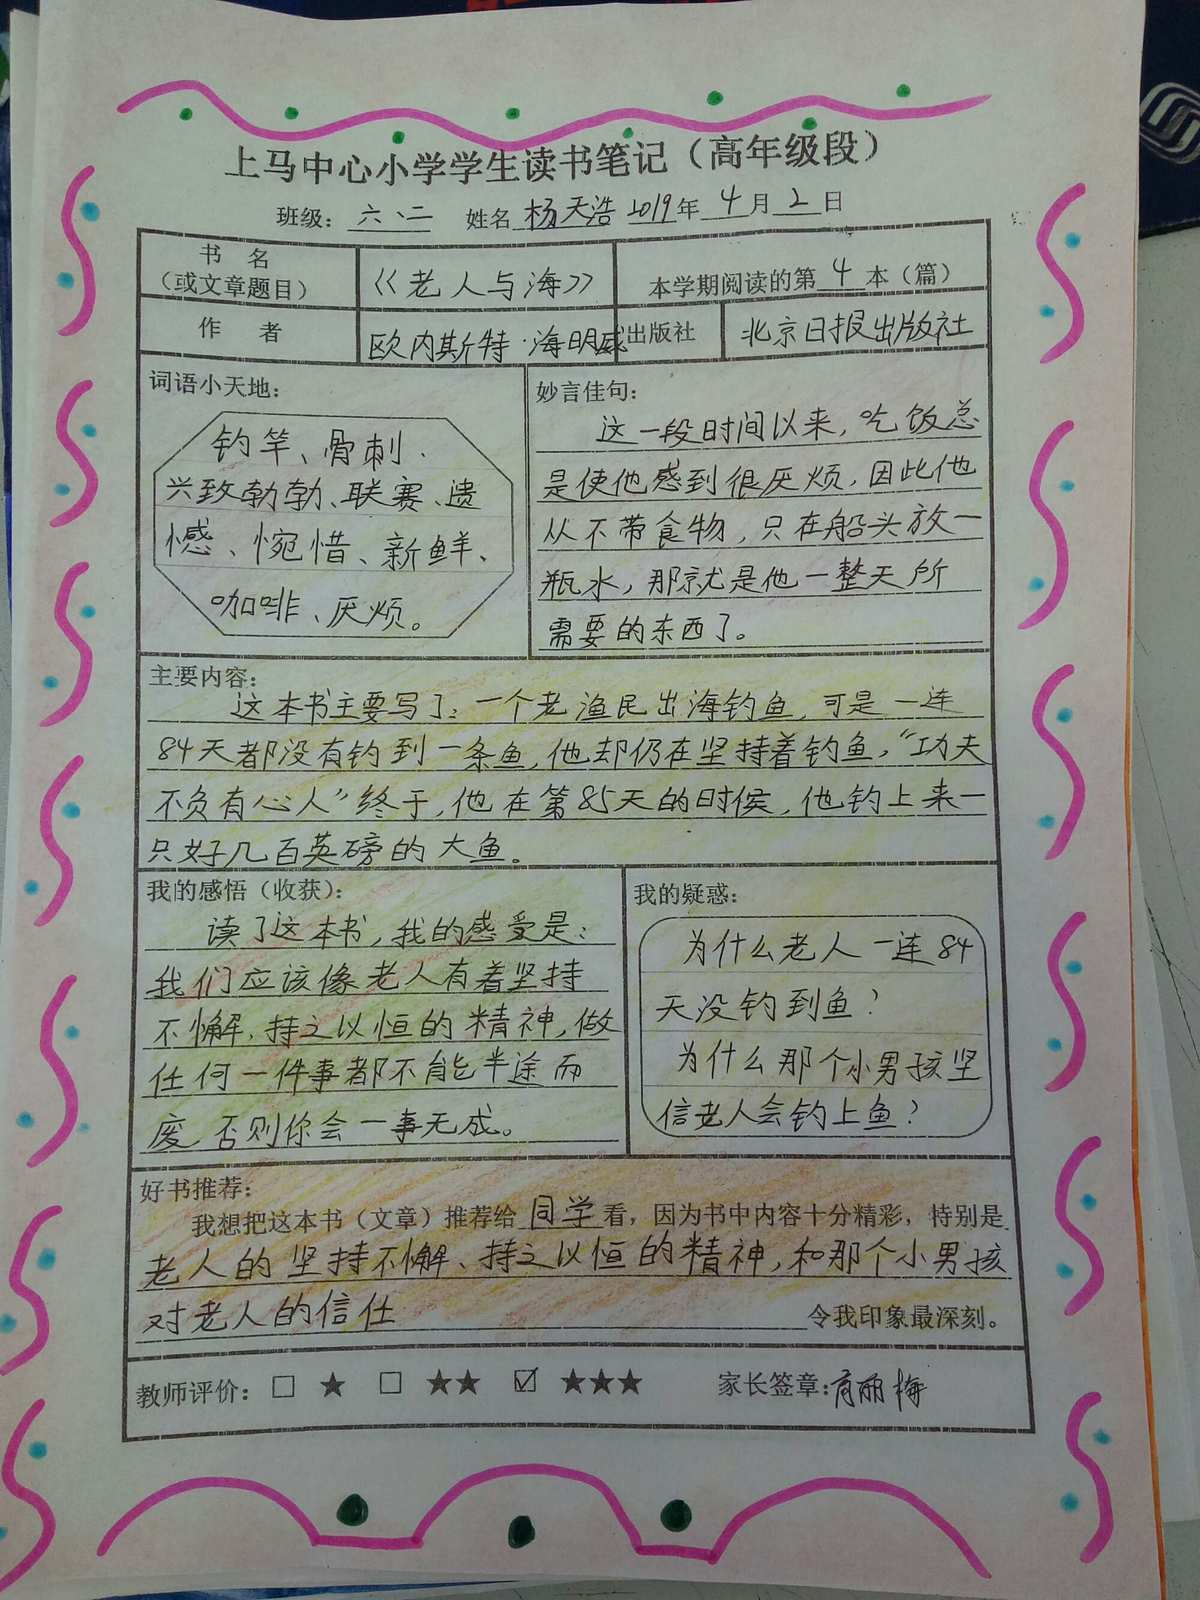 上马中心小学学生读书笔记（高年级段）
班级：六、二 姓名 杨天浩 2019年4月2日
书 名
（或文章题目）
《老人与海》
本学期阅读的第4本（篇）
作 者
欧内斯特·海明威
出版社
北京日报出版社
词语小天地：
钓竿、骨刺、
兴致勃勃、联赛、遗
憾、惋惜、新鲜、
咖啡、厌烦。
妙言佳句：
这一段时间以来，吃饭总
是使他感到很厌烦，因此他
从不带食物，只在船头放一
瓶水，那就是他一整天所
需要的东西了。
主要内容：
这本书主要写了：一个老渔民出海钓鱼，可是一连
84天都没有钓到一条鱼，他却仍在坚持着钓鱼，“功夫
不负有心人”终于，他在第85天的时候，他钓上来一
只好几百英磅的大鱼。
我的感悟（收获）：
读了这本书，我的感受是：
我们应该像老人有着坚持
不懈、持之以恒的精神，做
任何一件事都不能半途而
废，否则你会一事无成。
我的疑惑：
为什么老人一连84
天没钓到鱼？
为什么那个小男孩坚
信老人会钓上鱼？
好书推荐：
我想把这本书（文章）推荐给同学看，因为书中内容十分精彩，特别是
老人的坚持不懈、持之以恒的精神，和那个小男孩
对老人的信任令我印象最深刻。
教师评价：□ ★ □ ★★ ☑ ★★★ 家长签章：丽梅